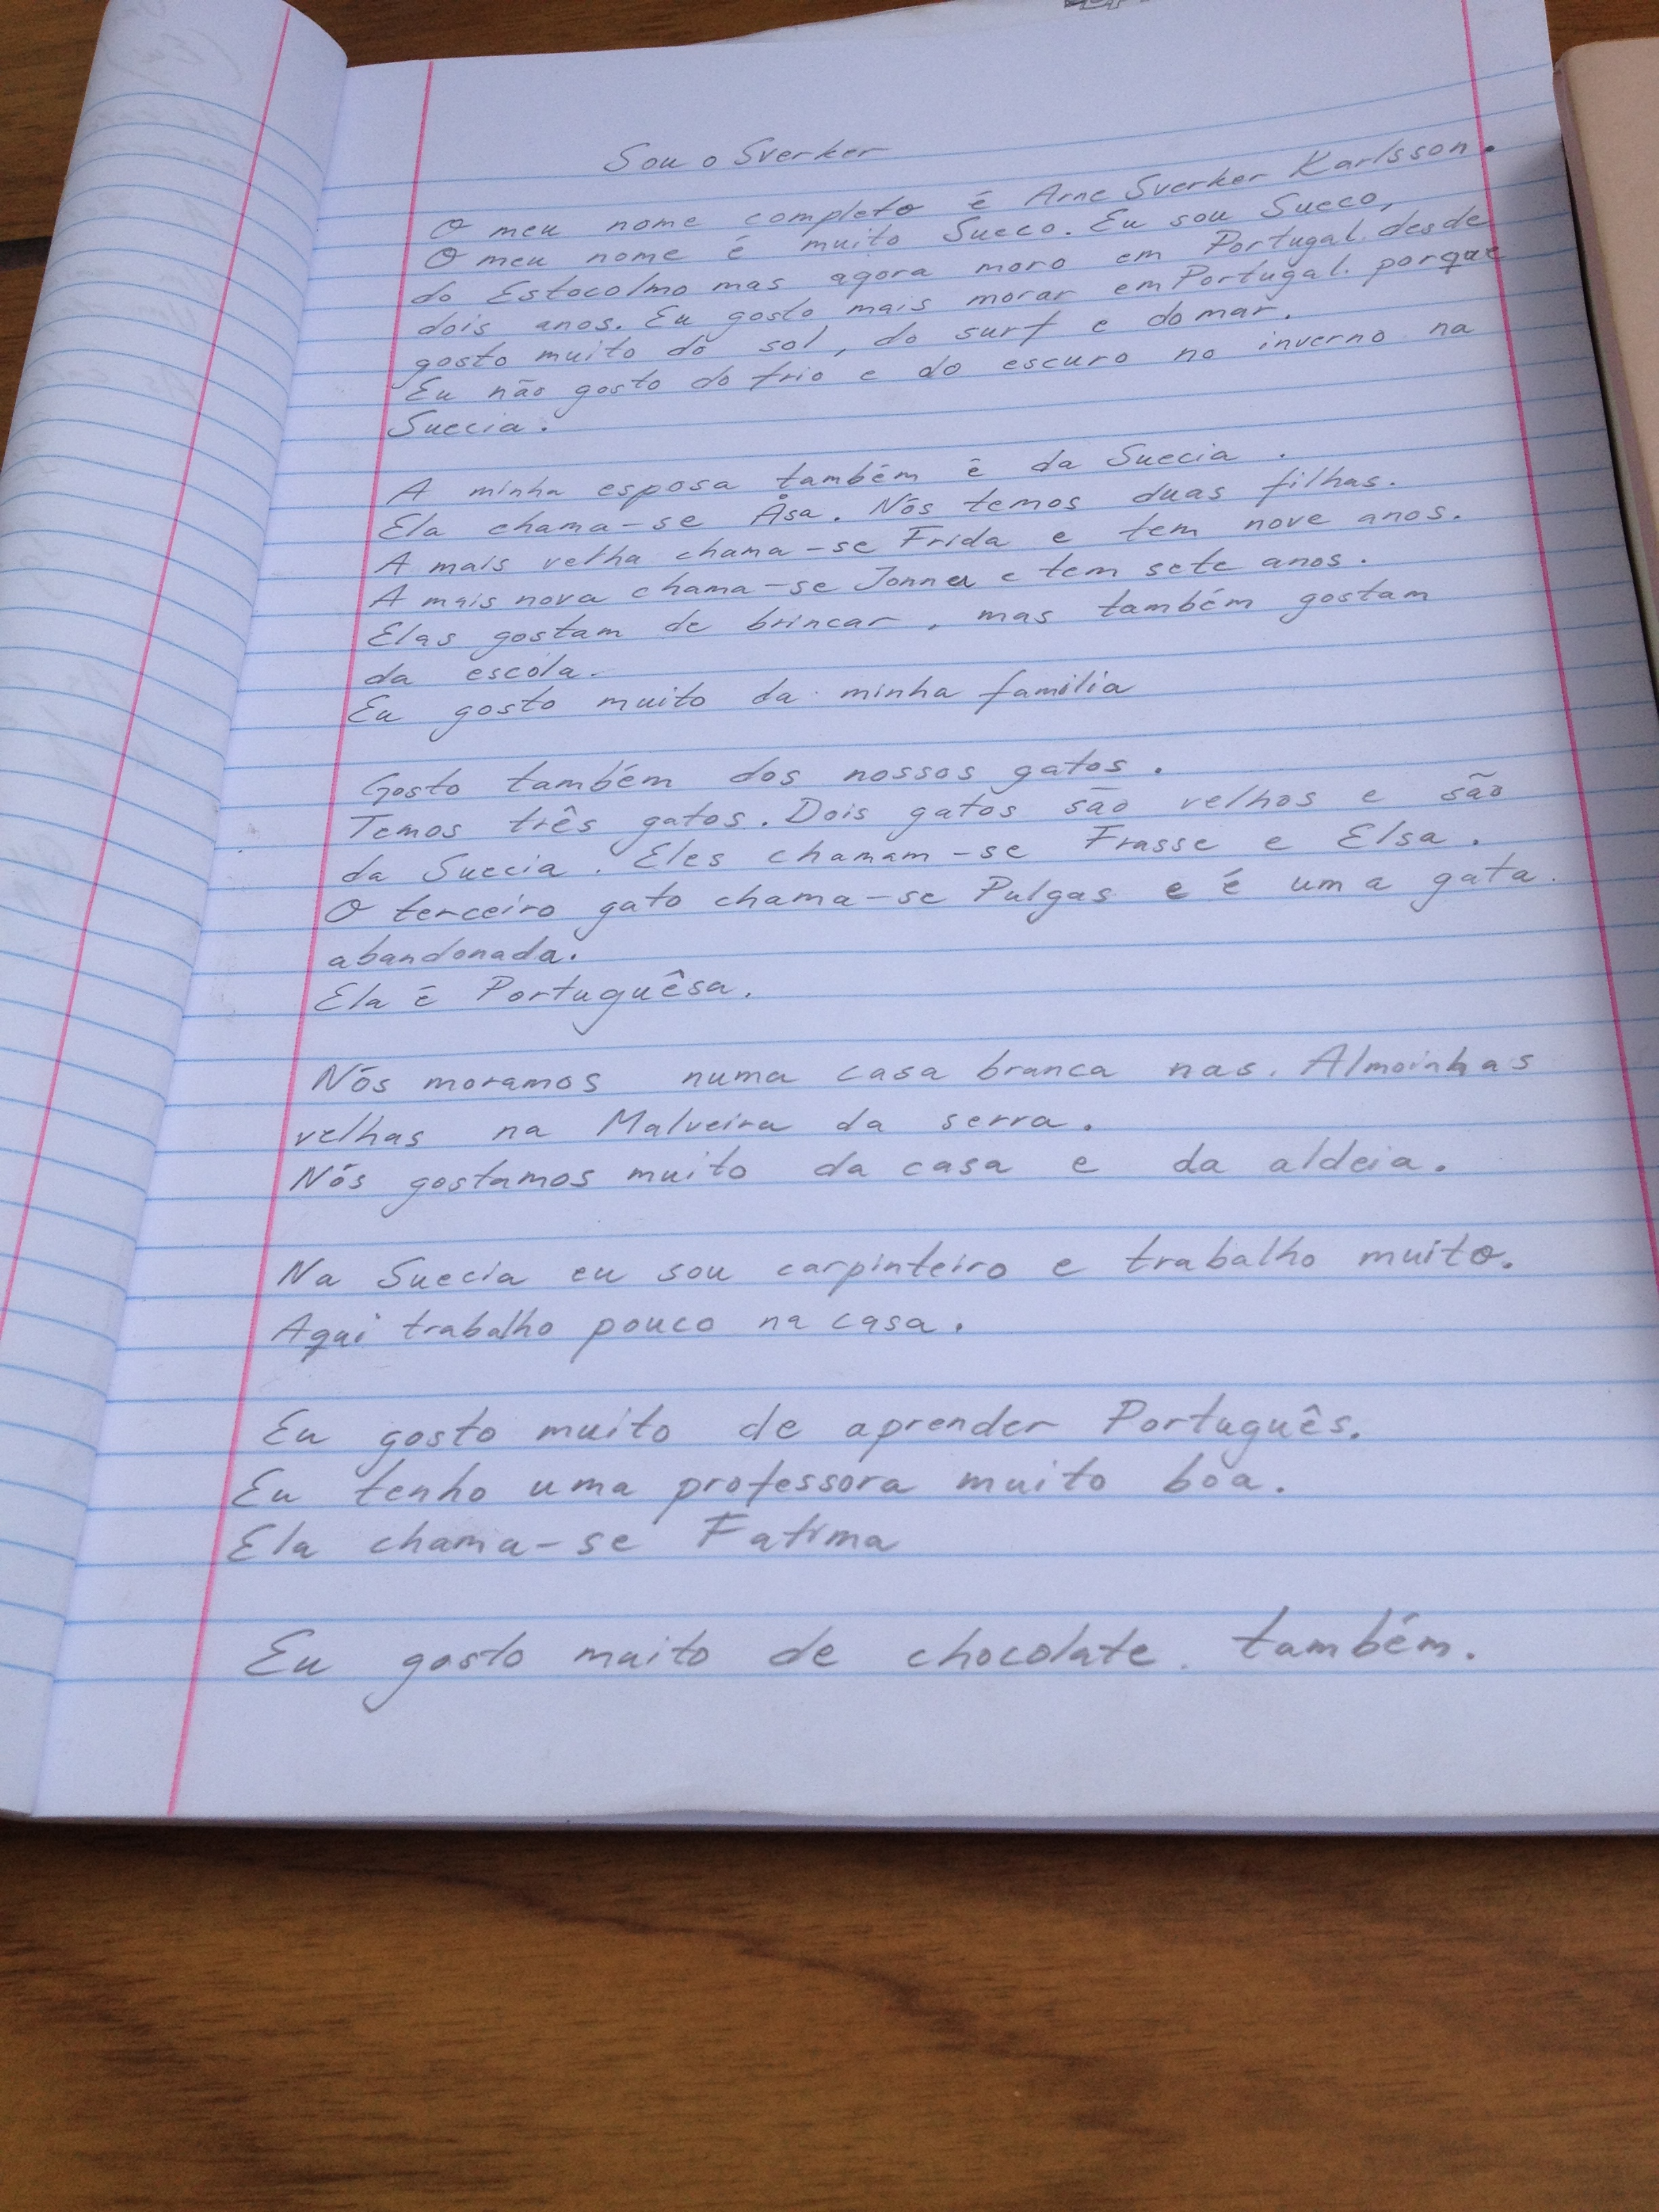 Sou o Sverker
O meu nome completo é Arne Sverker Karlsson.
O meu nome é muito Sueco. Eu sou Sueco,
do Estocolmo mas agora moro em Portugal desde
dois anos. Eu gosto mais morar em Portugal. porque
gosto muito do sol, do surf e do mar.
Eu não gosto do frio e do escuro no inverno na
Suecia.
A minha esposa também é da Suecia.
Ela chama-se Åsa. Nós temos duas filhas.
A mais velha chama-se Frida e tem nove anos.
A mais nova chama-se Jonna e tem sete anos.
Elas gostam de brincar, mas também gostam
da escóla.
Eu gosto muito da minha familia
Gosto também dos nossos gatos.
Temos três gatos. Dois gatos são velhos e são
da Suecia. Eles chamam-se Frasse e Elsa.
O terceiro gato chama-se Pulgas e é uma gata
abandonada.
Ela é Portuguêsa.
Nós moramos numa casa branca nas Almoinhas
velhas na Malveira da serra.
Nós gostamos muito da casa e da aldeia.
Na Suecia eu sou carpinteiro e trabalho muito.
Aqui trabalho pouco na casa.
Eu gosto muito de aprender Português.
Eu tenho uma professora muito boa.
Ela chama-se Fatima
Eu gosto muito de chocolate também.